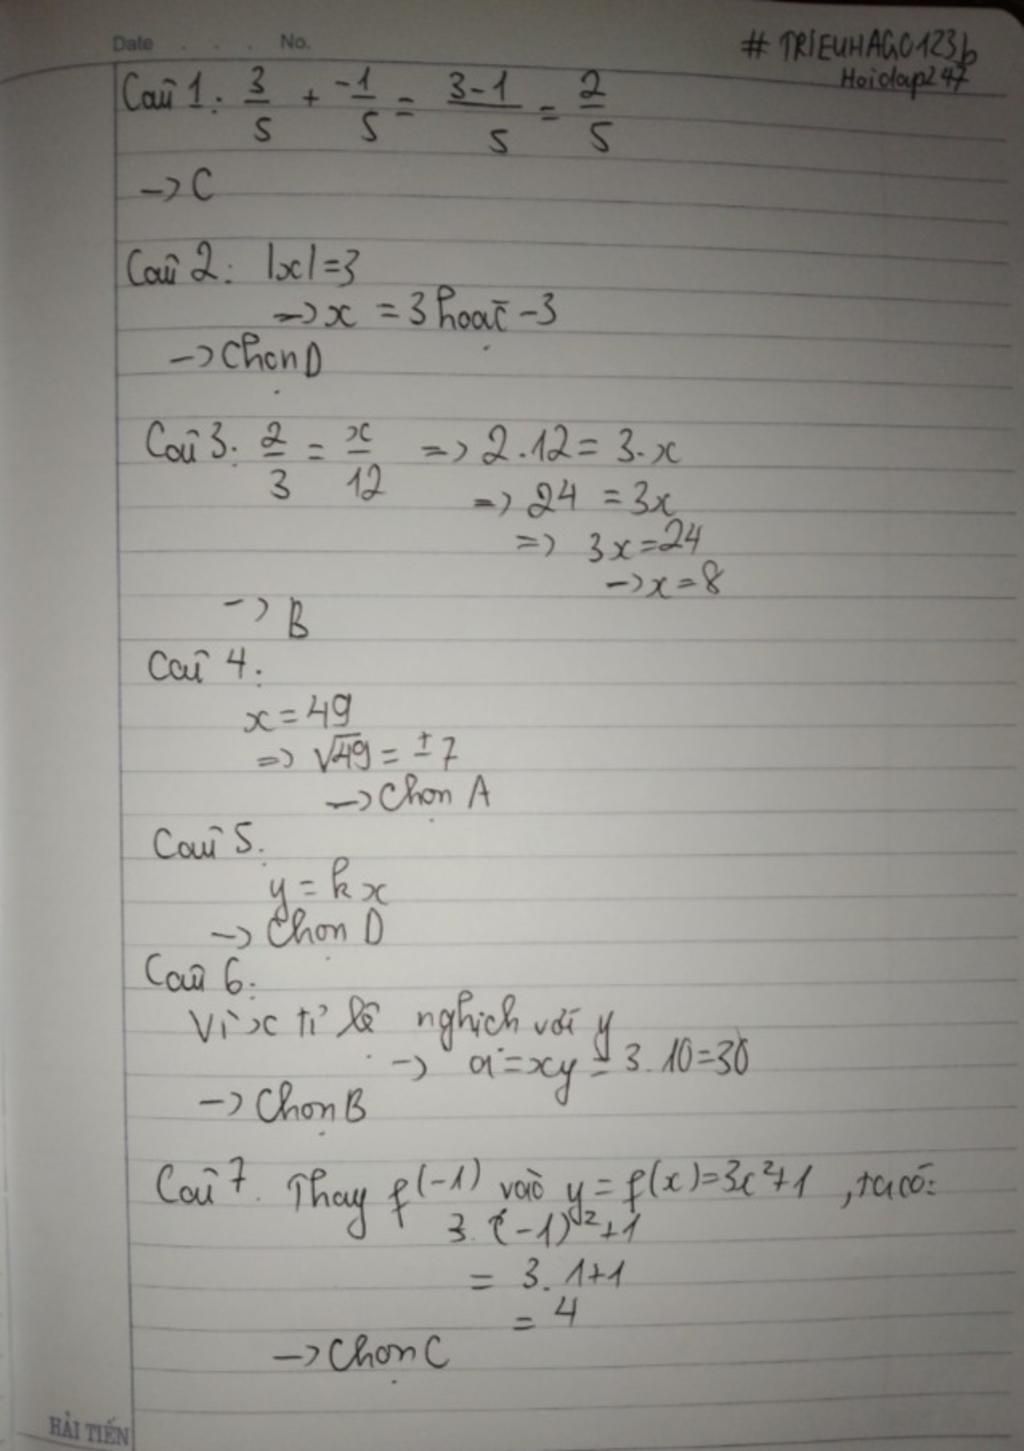 Date . . . No.
# TRIEUHAGO123b
Hoidap247
Câu 1: 3/5 + -1/5 = 3-1/5 = 2/5
-> C
Câu 2: |x| = 3
-> x = 3 hoặc -3
-> Chọn D
Câu 3. 2/3 = x/12 => 2.12 = 3.x
=> 24 = 3x
=> 3x = 24
-> x = 8
-> B
Câu 4:
x = 49
=> √49 = ±7
-> Chọn A
Câu 5.
y = kx
-> Chọn D
Câu 6:
Vì x tỉ lệ nghịch với y
-> a = xy = 3.10 = 30
-> Chọn B
Câu 7. Thay f(-1) vào y = f(x) = 3x²+1, ta có:
3.(-1)²+1
= 3.1+1
= 4
-> Chọn C
HẢI TIẾN